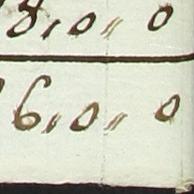 8,,0,,0
6,,0,,0